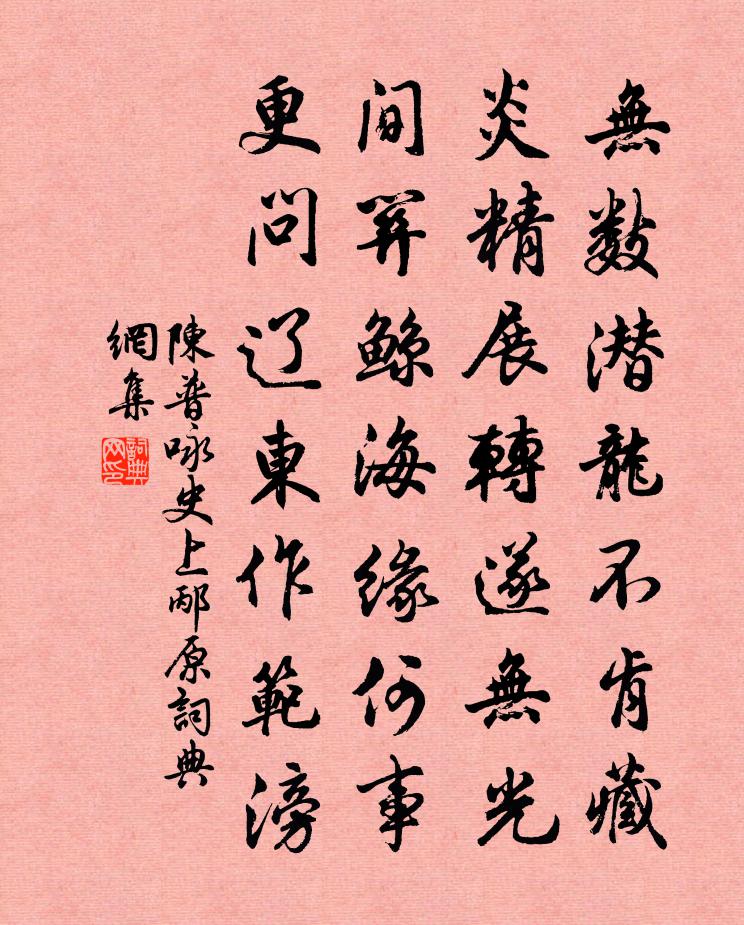 無数潜龍不肯藏
炎精展轉遂無光
間關鲸海緣何事
更问辽東作範滂
陳普咏史上邴原詞典
網集
詞典網印